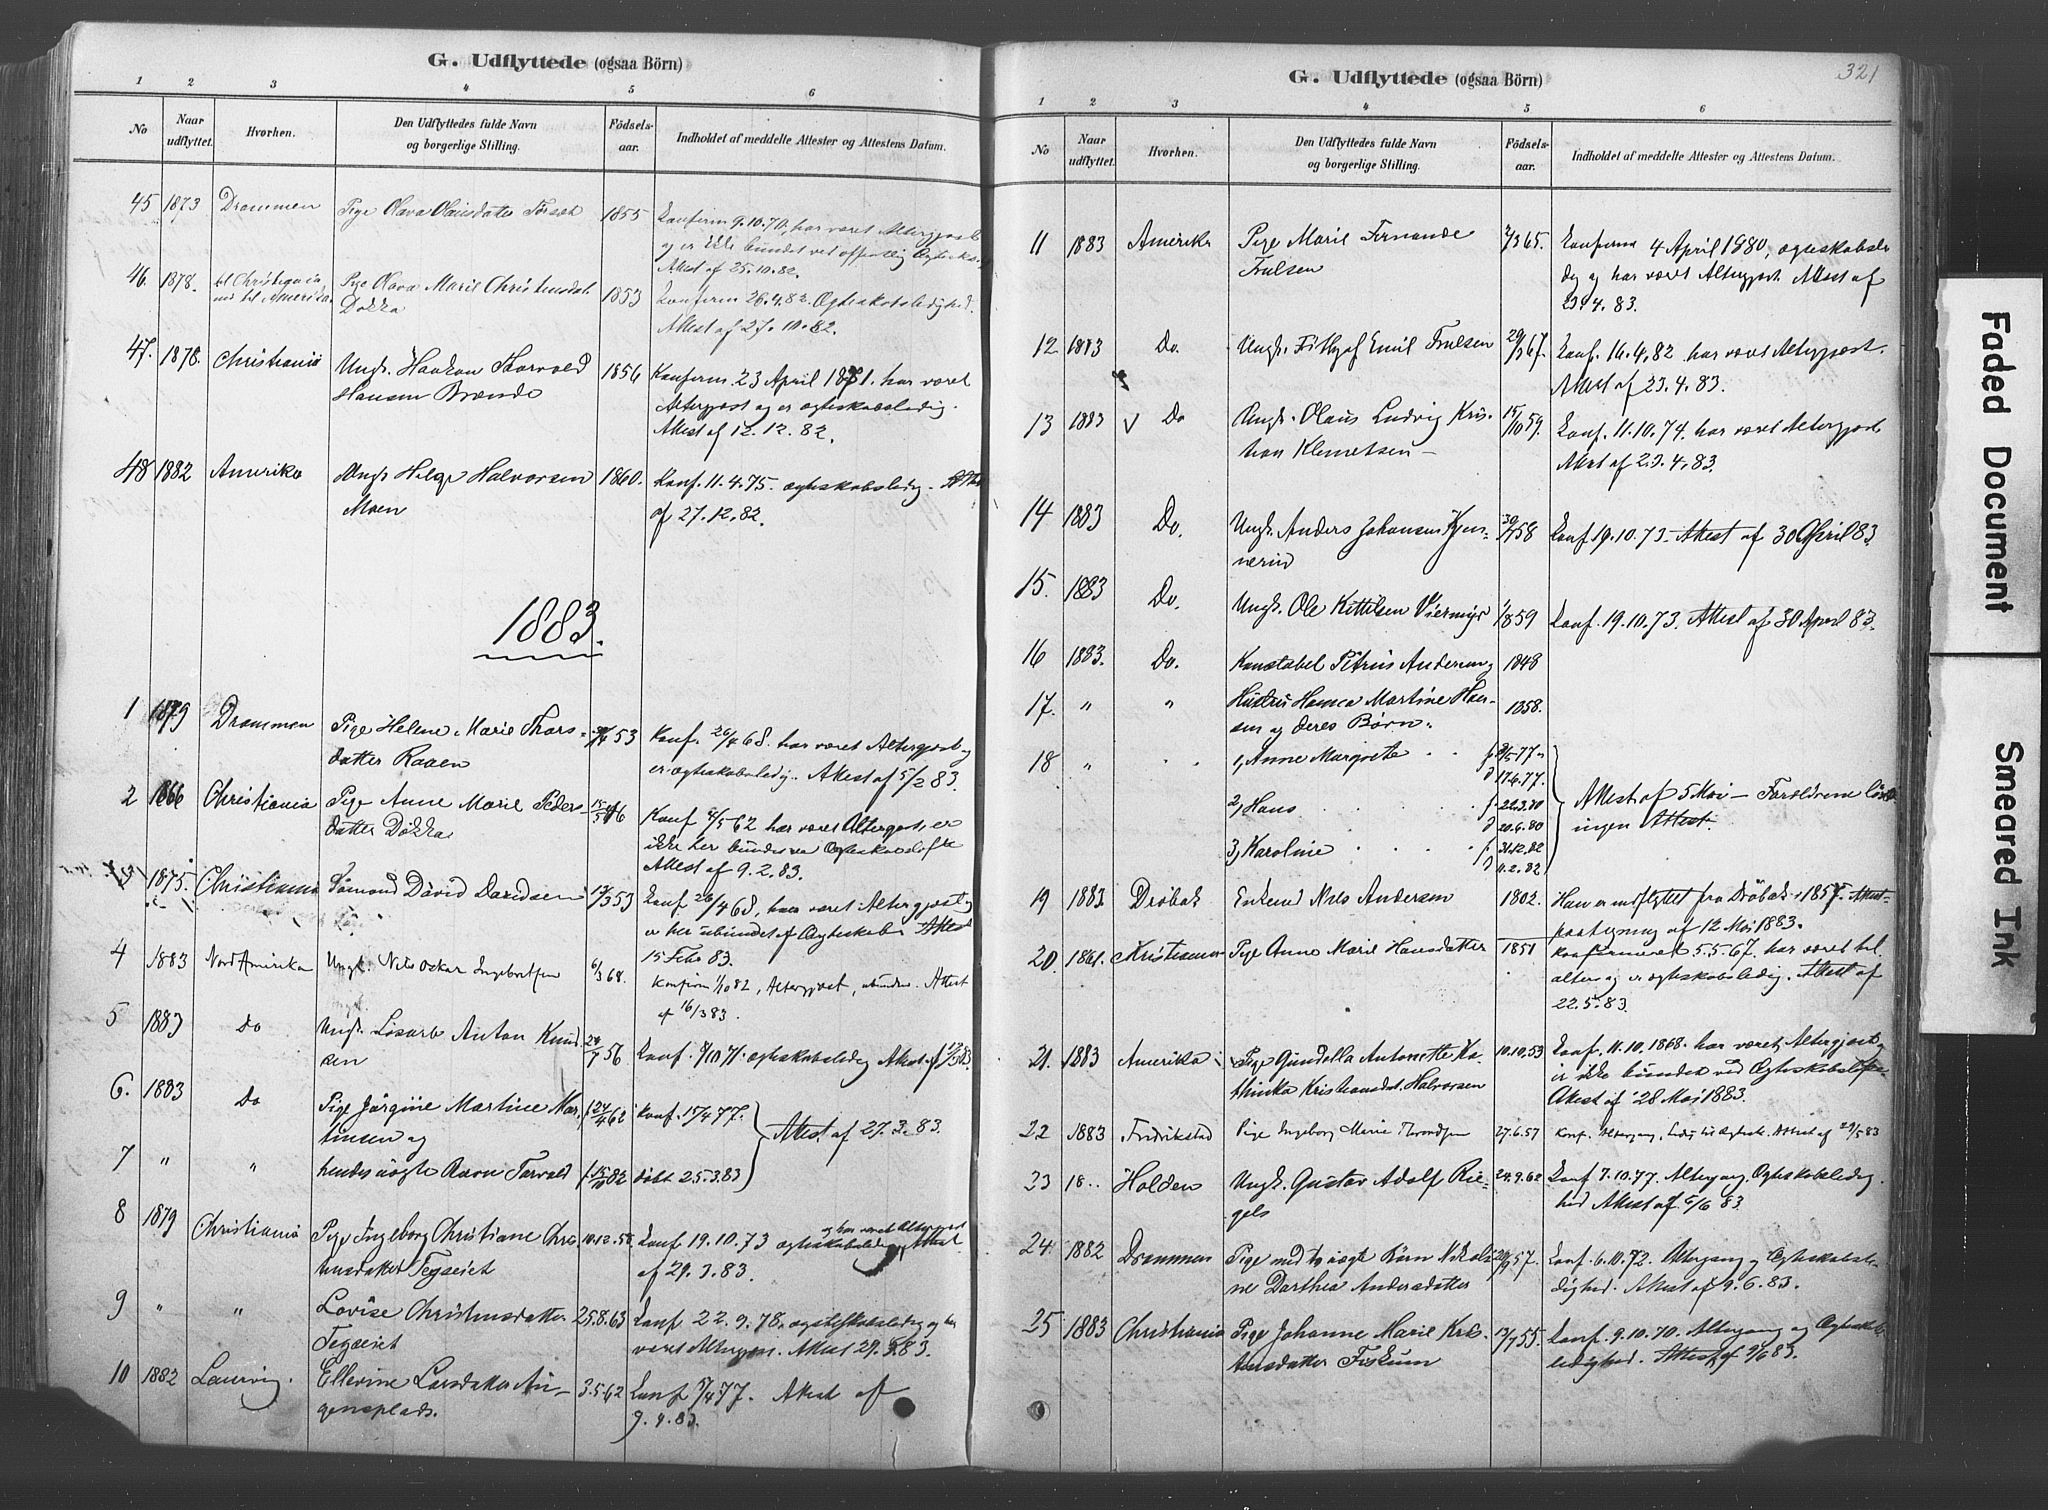 G. Udflyttede (ogsaa Börn)
1 2 3 4 5 6
No Naar udflyttet. Hvorhen. Den Udflyttedes fulde Navn og borgerlige Stilling. Födsels-aar. Indholdet af meddelte Attester og Attestens Datum.
45 1873 Drammen Pige Olava Olausdatter 1855 Konferm 9.10.70, har været Altergjest
og er ikke bundet ved offentlig
Attest af 25.10.82.
46. 1878. til Christiania Pige Olava Marie Christensdat. 1853 Konferm 26.4.82 Ogteskabsledighed.
Dokka Attest af 27.10.82.
47. 1878. Christiania Ungk. Haakon Thorvald 1856 Konferm. 23 April 1871. har været
Hansen Brænde Altergjest og er ægteskabsledig.
Attest af 12.12.82.
48 1882 Amerika Ungk. Helge Halvorsen 1860. Konf. 11.4.75. ægteskabsledig. Attest
Moen af 27.12.82.
1883.
1 1879 Drammen Pige Helene Marie Thors- 53 Konf. 26/4 68. har været Altergjest og
datter Raaen er ægteskabsledig. Attest af 5/2 83.
2 1866 Christiania Pige Anne Marie Peders- 15/5 46 Konf 62 har været Altergjest, er
datter Dokka ikke her bunden ved Ogteskabsløfte
Attest af 9.2.83.
3 1875. Christiania Sømand David Davidsen 53 Konf 26/4 68, har været Altergjest og
er her ubundet af Ogteskab. Attest
15 Feb. 83.
4 1883 Nord Amerika Ungk. Nils Oskar Ingebretsen 6/3 68. Konfirm 1/10 82, Altergjest, ubunden. Attest
af 16/3 83.
5 1883 Do Ungk. Anton Knud- 24/7 56 Konf. 8/10 71. ægteskabsledig Attest af
sen
6. 1883 Do Pige Jørgine Martine Mar- 24/4 62 Konf. 15/4 77.
tinsen og Attest af 27.3.83.
7 " " hendes uægte Barn Torvald 15/10 82 døbt 25.3.83
8 1879 Christiania Pige Ingeborg Christiane Chris- 10.12.58 Konf. 19.10.73 ægteskabsledig og har været Altergjest Attest
tensdatter Tegseiet af 29.3.83.
9 " " Lovise Christensdatter 25.8.63 Konf 22.9.78. ægteskabsledig og har
Tegseiet været Altergjen. Attest 29.3.83.
10 1882 Laurvig. Ellevine Larsdatter 3.5.62 Konf 77. Attest af
gensplads. 9.4.83.
G. Udflyttede (ogsaa Börn) 321
1 2 3 4 5 6
No Naar udflyttet. Hvorhen. Den Udflyttedes fulde Navn og borgerlige Stilling. Födsels-aar. Indholdet af meddelte Attester og Attestens Datum.
11 1883 Amerika Pige Marie Fernande 65. Konferm 4 April 1880, ægteskabsle-
Trulsen dig og har været Altergjest. Attest af
23.4.83.
12 1883 Do. Ungk. Frithjof Emil Trulsen 67. Konf. 16.4.82 har været Altergjæst.
Attest af 23.4.83.
13 1883 Do Ungk. Olaus Ludvig Kris- 15/10 59. Konf. 11.10.74. har været Altergjest
tian Klemetsen Attest af 23.4.83.
14 1883 Do. Ungk. Anders Johansen Kjen- 58 Konf 19.10.73. Attest af 30 April 83.
nerud
15. 1883 Do. Ungk. Ole Kittilsen 59 Konf. 19.10.73. Attest af 30 April 83.
16 1883. Do. Konstabel Petrus Andersen og 1848
17. " " Hustru Hanna Martine Han- 1858.
sen og deres Børn.
18 " " 1, Anne Margrete f 77
d 17.6.77.
2, Hans f 22.3.80 Attest af 5 Mai - Forældrene
d 20.6.80 ingen Attest.
3, Karoline f 82
d 82
19 1883 Drøbak Enkemd Nils Andersen 1802. Han er indflyttet fra Drøbak i 1857. Attest-
paategning af 12 Mai 1883.
20. 1861. Kristiania Pige Anne Marie Hansdatter 1851 Konfirmeret 5.5.67. har været til
alters og er ægteskabsledig. Attest af
22.5.83.
21. 1883 Amerika Pige Gundella Antonette Ka- 10.10.53 Konf. 11.10.1868. har været Altergjest og
thinka Kristiansdat. Halvorsen er ikke bunden ved Ogteskabsløfte.
Attest af 28 Mai 1883.
22 1883 Fredrikstad Pige Ingeborg Marie Trondsen 27.6.57 Konf. Altergang, ledig til Ogtesk. Attest af 29/5 83
23 18.. Holden Ungk. Gustav Adolf Rie- 24.9.62 Konf. 7.10.77. Altergang, Ogteskabsledig-
gels hed Attest af 5/6 83.
24. 1882 Drammen Pige med to uægte Børn Nikoli- 57. Konf. 6.10.72. Altergang og Ogteskabsle-
ne Dorthea Andersdatter dighed. Attest af 9.6.83.
25 1883 Christiania Pige Johanne Marie Kris- 55. Konf. 9.10.70. Altergang og Ogteskabs-
tiansdatter Fiskum ledighed. Attest af 9/6 83.
Faded Document
Smeared Ink